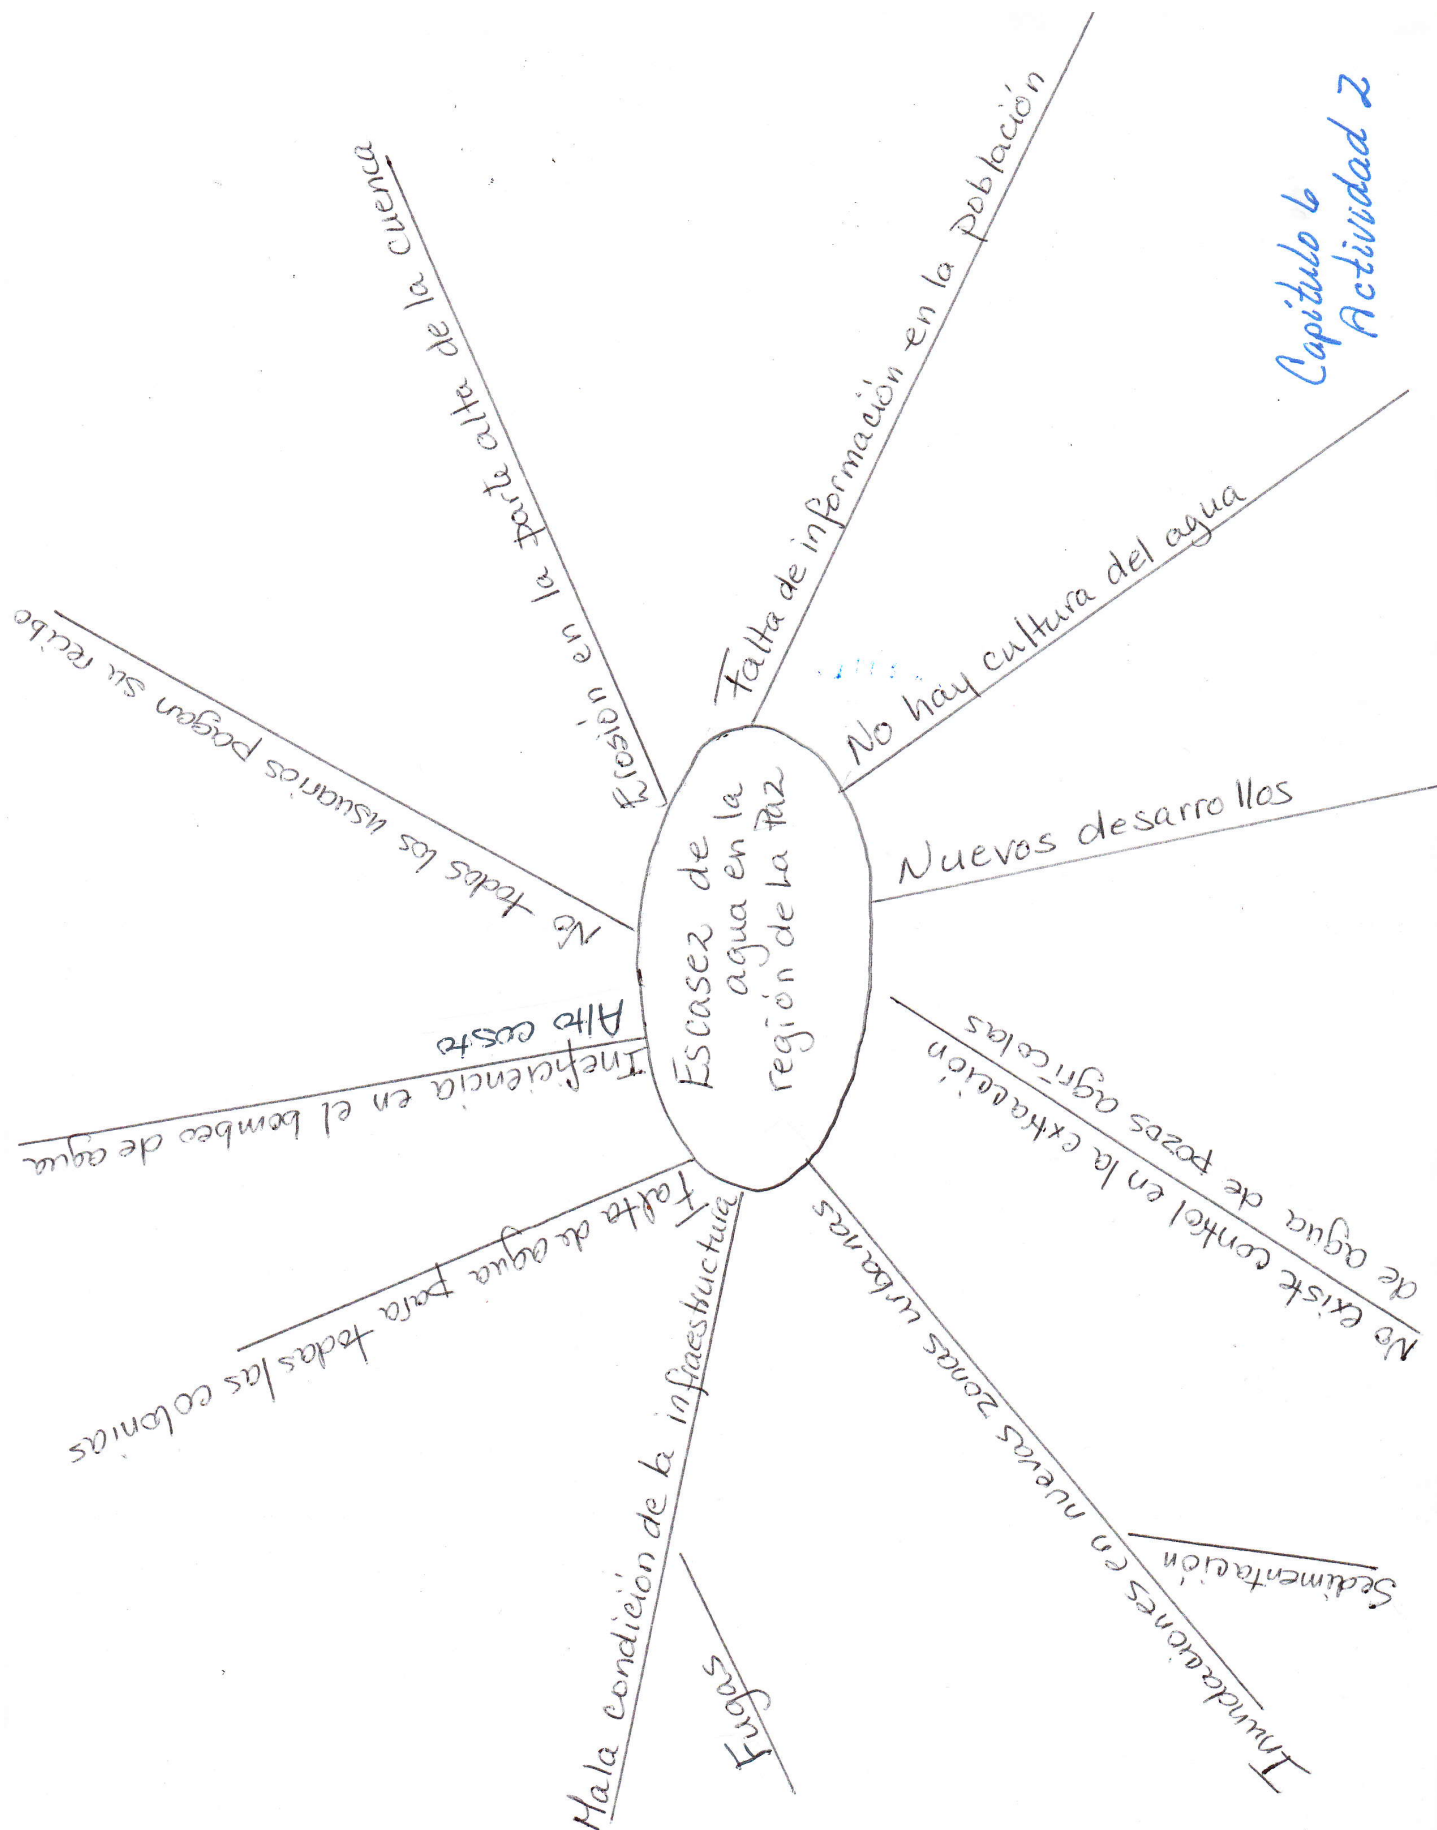 Capítulo 6
Actividad 2
Escasez de
agua en la
región de La Paz
Falta de información en la población
No hay cultura del agua
Nuevos desarrollos
No existe control en la extracción
de agua de pozos agrícolas
Inundaciones en nuevas zonas urbanas
Sedimentación
Mala condición de la infraestructura
Fugas
Falta de agua para todas las colonias
Ineficiencia en el bombeo de agua
Alto costo
No todos los usuarios pagan su recibo
Erosión en la parte alta de la cuenca